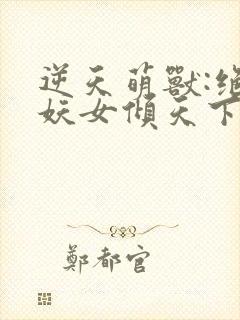 逆天萌獸:
妖女傾天下
鄭都官